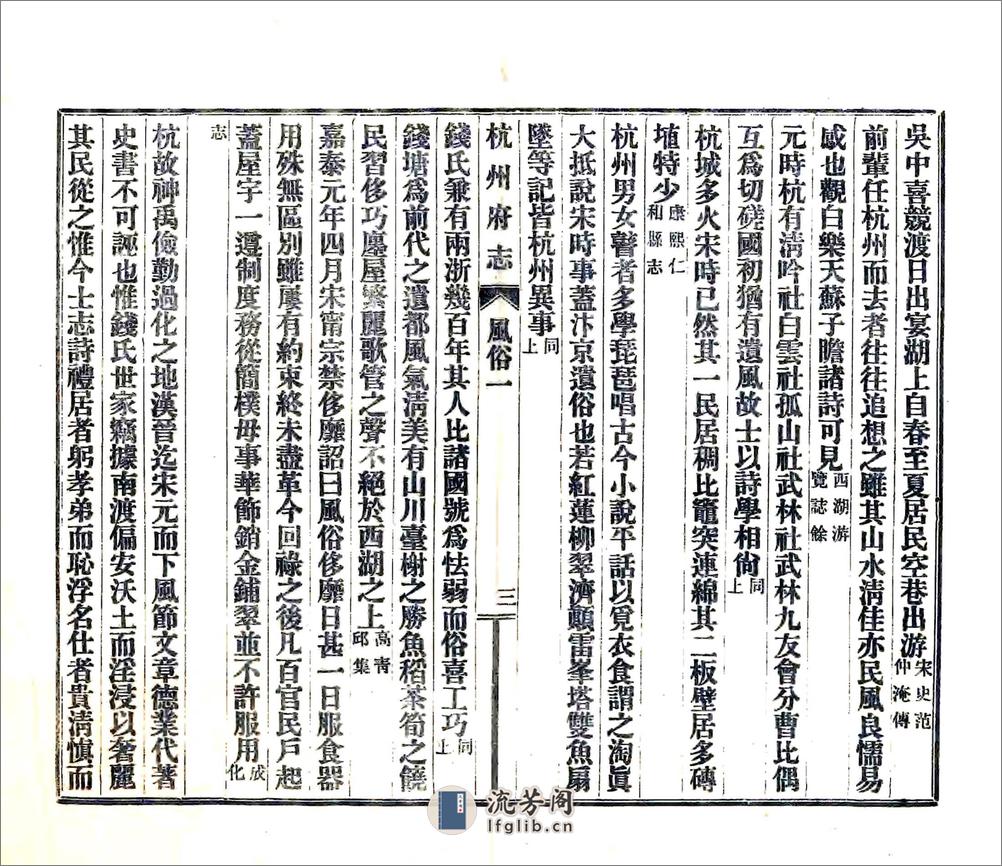 吳中喜競渡日出宴湖上自春至夏居民空巷出游宋史范仲淹傳
前輩任杭州而去者往往追想之雖其山水淸佳亦民風良懦易
感也觀白樂天蘇子瞻諸詩可見西湖游覽誌餘
元時杭有淸吟社白雲社孤山社武林社武林九友會分曹比偶
互爲切磋國初猶有遺風故士以詩學相尙同上
杭城多火宋時已然其一民居稠比竈突連綿其二板壁居多磚
埴特少康熙仁和縣志
杭州男女瞽者多學琵琶唱古今小說平話以覓衣食謂之淘眞
大抵說宋時事蓋汴京遺俗也若紅蓮柳翠濟顚雷峯塔雙魚扇
墜等記皆杭州異事同上
杭州府志 風俗一 三
錢氏兼有兩浙幾百年其人比諸國號爲怯弱而俗喜工巧同上
錢塘爲前代之遺都風氣淸美有山川臺榭之勝魚稻茶筍之饒
民習侈巧廛屋繁麗歌管之聲不絕於西湖之上高靑邱集
嘉泰元年四月宋甯宗禁侈靡詔曰風俗侈靡日甚一日服食器
用殊無區別雖屢有約束終未盡革今回祿之後凡百官民戶起
蓋屋宇一遵制度務從簡樸毋事華飾銷金鋪翠並不許服用成化
志
杭故神禹儉勤過化之地漢晉迄宋元而下風節文章德業代著
史書不可誣也惟錢氏世家竊據南渡偏安沃土而淫浸以奢麗
其民從之惟今士志詩禮居者躬孝弟而恥浮名仕者貴淸愼而
流芳阁
lfglib.cn